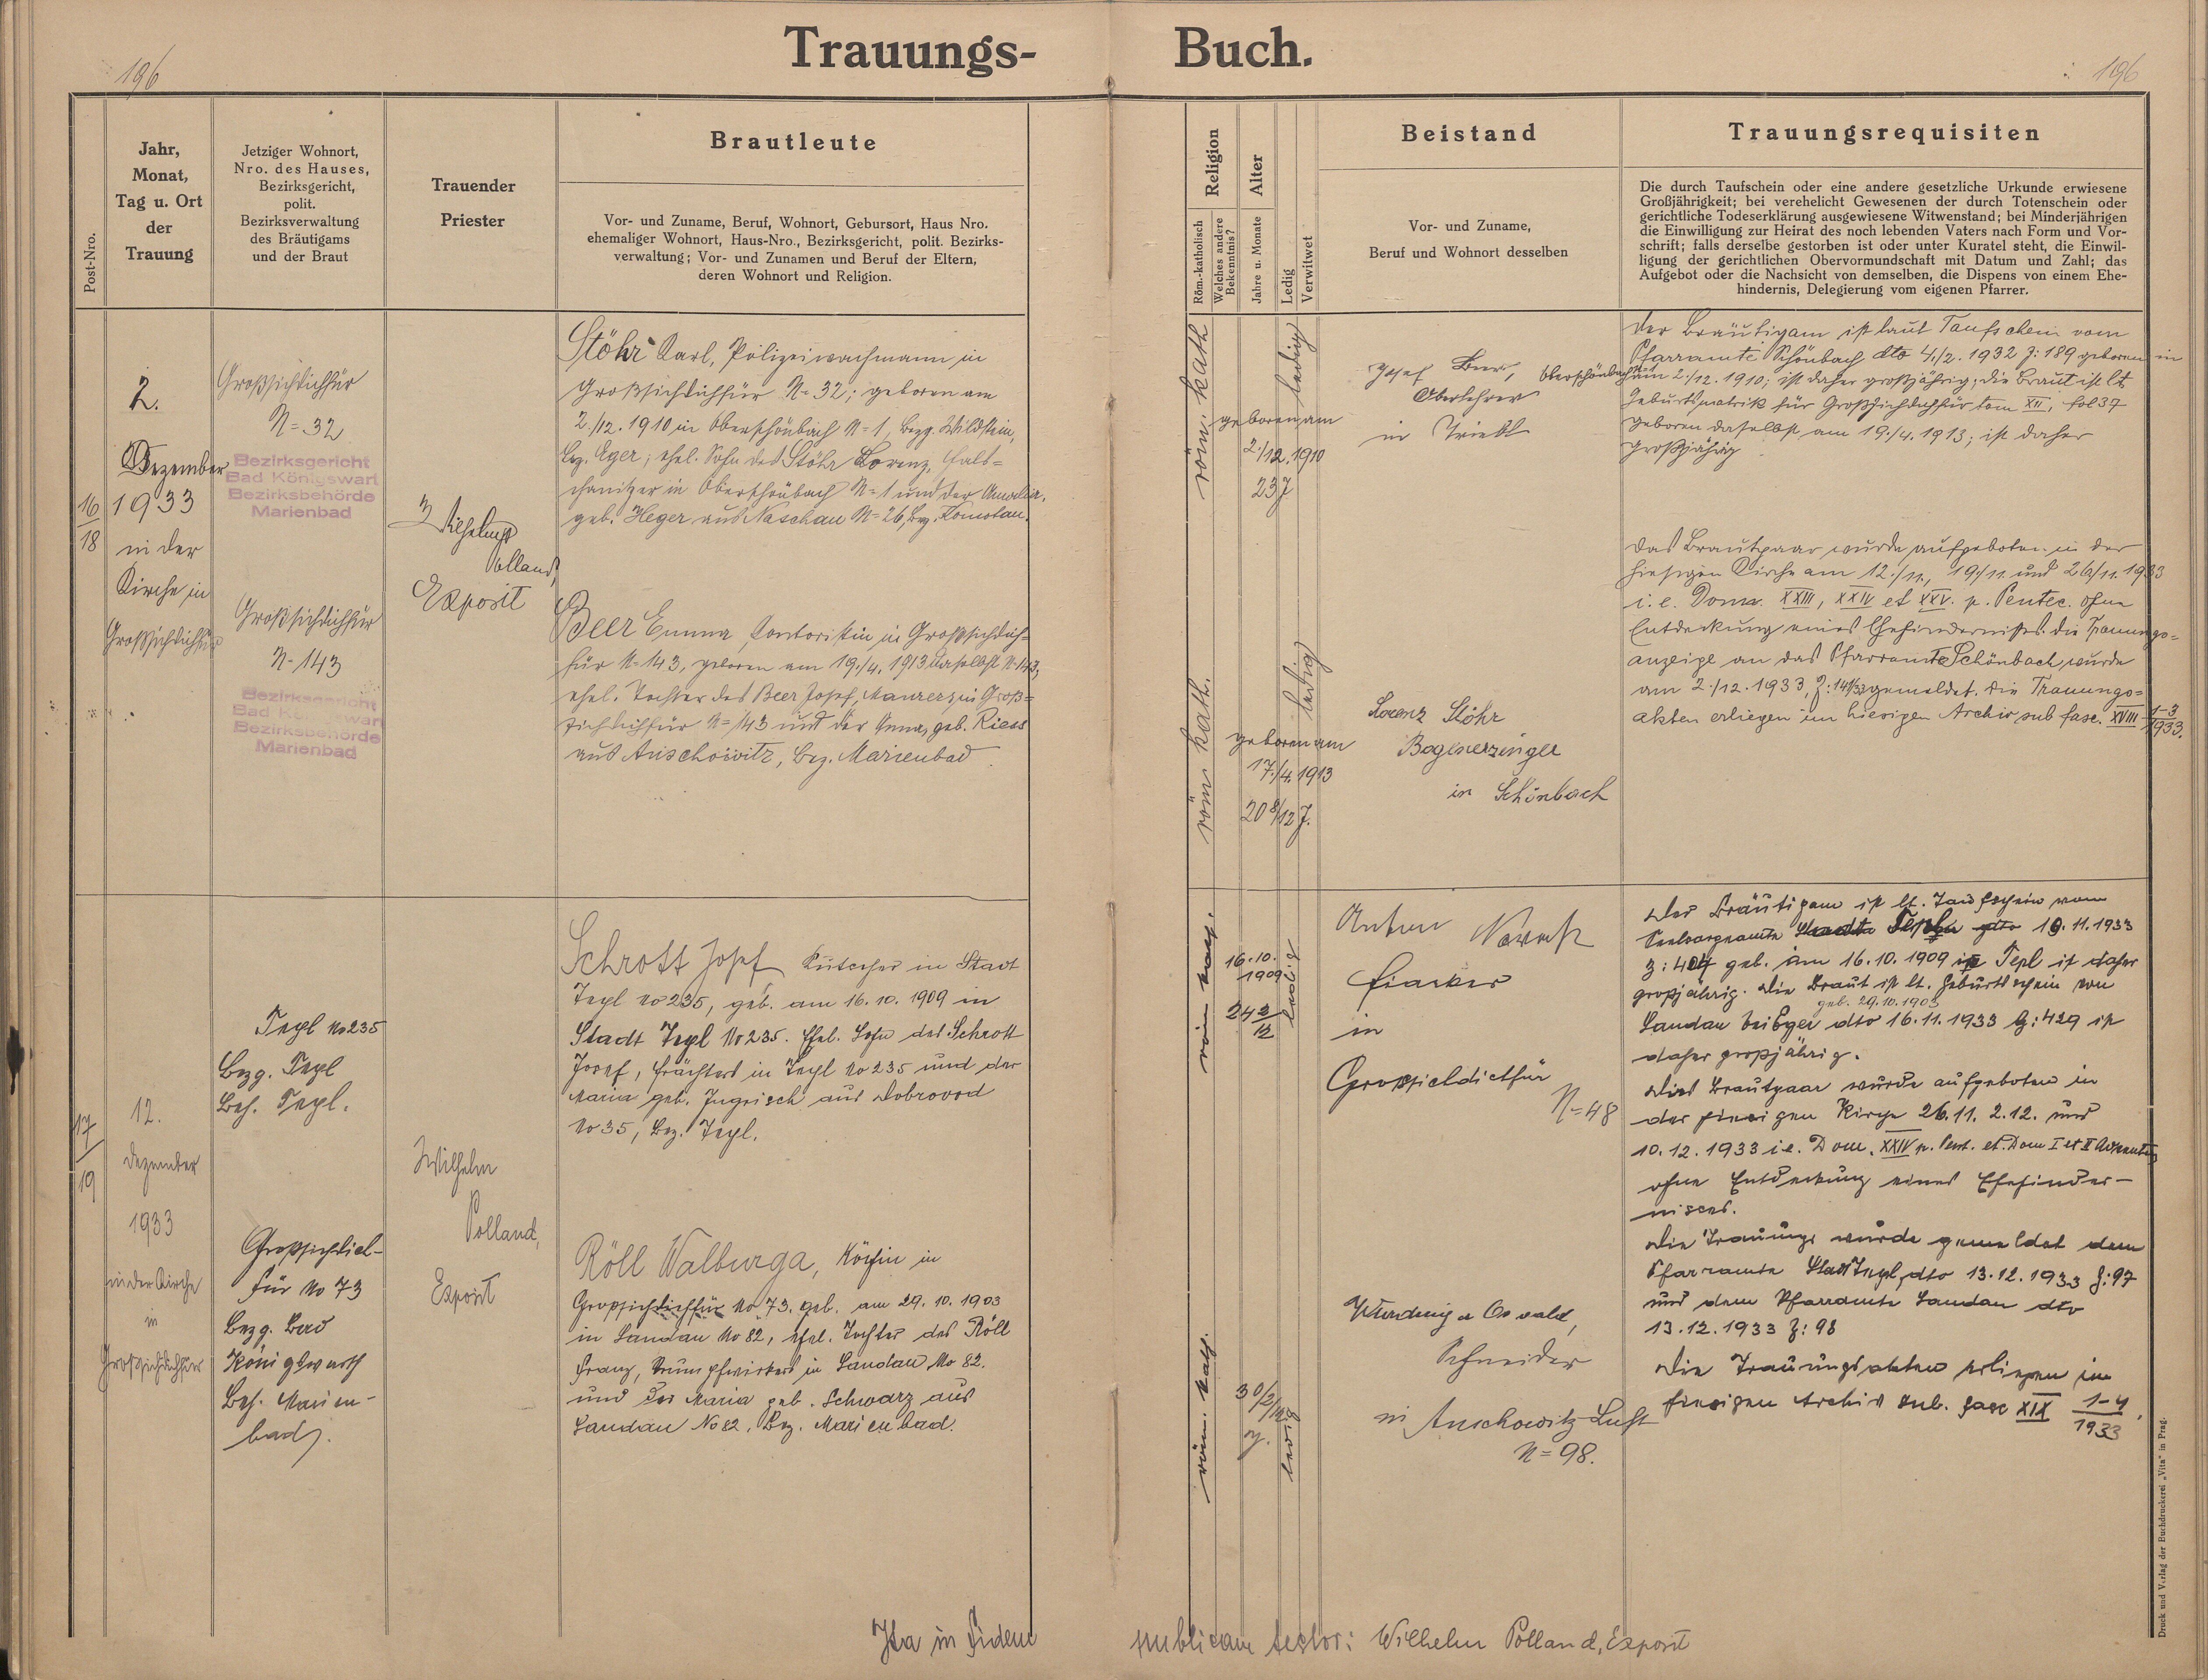 Trauungs- Buch.
196
196
Post-Nro.
Jahr,
Monat,
Tag u. Ort
der
Trauung
Jetziger Wohnort,
Nro. des Hauses,
Bezirksgericht,
polit.
Bezirksverwaltung
des Bräutigams
und der Braut
Trauender
Priester
Brautleute
Vor- und Zuname, Beruf, Wohnort, Gebursort, Haus Nro.
ehemaliger Wohnort, Haus-Nro., Bezirksgericht, polit. Bezirks-
verwaltung; Vor- und Zunamen und Beruf der Eltern,
deren Wohnort und Religion.
Religion
Röm.-katholisch
Welches andere
Bekenntnis?
Alter
Jahre u. Monate
Ledig
Verwitwet
Beistand
Vor- und Zuname,
Beruf und Wohnort desselben
Trauungsrequisiten
Die durch Taufschein oder eine andere gesetzliche Urkunde erwiesene
Großjährigkeit; bei verehelicht Gewesenen der durch Totenschein oder
gerichtliche Todeserklärung ausgewiesene Witwenstand; bei Minderjährigen
die Einwilligung zur Heirat des noch lebenden Vaters nach Form und Vor-
schrift; falls derselbe gestorben ist oder unter Kuratel steht, die Einwil-
ligung der gerichtlichen Obervormundschaft mit Datum und Zahl; das
Aufgebot oder die Nachsicht von demselben, die Dispens von einem Ehe-
hindernis, Delegierung vom eigenen Pfarrer.
16
18
2.
Dezember
1933
in der
Kirche in
Großsichdichfür
Großsichdichfür
N=32
Bezirksgericht
Bad Königswart
Bezirksbehörde
Marienbad
Großsichdichfür
N=143
Bezirksgericht
Bad Königswart
Bezirksbehörde
Marienbad
Wilhelm
Polland,
Exposit
Stöhr Karl, Polizeiwachmann in
Großsichdichfür N=32; geboren am
2./12. 1910 in Oberschönbach N=1, Bezg. Wildstein,
Bez. Eger; ehel. Sohn des Stöhr Lorenz,
in Oberschönbach N=1 und der Amalia,
geb. Heger aus Naschau N=26, Bez. Komotau.
Beer Emma, Kontoristin in Großsichdich=
für N=143, geboren am 19./4. 1913 daselbst N=143,
ehel. Tochter des Beer Josef, Maurers in Groß=
sichdichfür N=143 und der Anna, geb. Riess
aus Auschowitz, Bez. Marienbad.
röm. kath
geboren am
2./12. 1910
23 J
ledig
röm. kath.
geboren am
17./4. 1913
20 8/12 J.
ledig
Josef Beer,
Oberlehrer
in Triebl
Lorenz Stöhr
Bogenerzeuger
in Schönbach
Der Bräutigam ist laut Taufschein vom
Pfarramte Schönbach dto 4./2. 1932 Z: 189 geboren in
Oberschönbach N=1 am 2./12. 1910; ist daher großjährig; die Braut ist lt
Geburtsmatrik für Großsichdichfür tom XII, fol 37
geboren daselbst am 19./4. 1913; ist daher
großjährig
Das Brautpaar wurde aufgeboten in der
hiesigen Kirche am 12./11., 19./11. und 26./11. 1933
i. e. Dom. XXIII, XXIV et XXV. p. Pentec. ohne
Entdeckung eines Ehehindernisses. Die Trauungs=
anzeige an das Pfarramte Schönbach wurde
am 2./12. 1933, Z: 141/33 gemeldet. Die Trauungs=
akten erliegen im hiesigen Archiv sub fasc. XVIII 1-3/1933.
17
19
12.
Dezember
1933
in der Kirche
in
Großsichdichfür
Tepl No 235
Bezg. Tepl
Beh. Tepl.
Großsichdich-
für No 73
Bezg. Bad
Königswarth
Beh. Marien-
bad.
Wilhelm
Polland,
Exposit
Schrott Josef, Kutscher in Stadt
Tepl No 235, geb. am 16. 10. 1909 in
Stadt Tepl No 235. Ehel. Sohn des Schrott
Josef, Frächters in Tepl No 235 und der
Maria geb. Ingrisch aus Dobrovod
No 35, Bez. Tepl.
Röll Walburga, Köchin in
Großsichdichfür No 73. geb. am 29. 10. 1903
in Sandau No 82, ehel. Tochter des Röll
Franz, Strumpfwirkers in Sandau No 82.
und der Maria geb. Schwarz aus
Sandau No 82. Bez. Marienbad.
röm. kath.
16. 10.
1909
24 2/12
ledig
röm. kath.
30 2/12
J.
ledig
Anton Nowak
Fiaker
in
Großsichdichfür
N=48
Oswald,
Schneider
in Auschowitz
N=98.
Der Bräutigam ist lt. Taufschein vom
Seelsorgeamte Stadt Tepl dto 19. 11. 1933
Z: 404 geb. am 16. 10. 1909 in Tepl ist daher
großjährig. Die Braut ist lt. Geburtsschein von
geb. 29. 10. 1903
Sandau bei Eger dto 16. 11. 1933 Z: 429 ist
daher großjährig.
Dies Brautpaar wurde aufgeboten in
der hiesigen Kirche 26. 11. 2. 12. und
10. 12. 1933 i. e. Dom. XXIV p. Pent. et. Dom I et II Adventus
ohne Entdeckung eines Ehehinder-
nisses.
Die Trauung wurde gemeldet dem
Pfarramte Stadt Tepl, dto 13. 12. 1933 Z: 97
und dem Pfarramte Sandau dto
13. 12. 1933 Z: 98
Die Trauungsakten erliegen im
hiesigen Archiv sub. fasc XIX 1-4/1933.
Ita in fidem publicam testor: Wilhelm Polland, Exposit
Druck und Verlag der Buchdruckerei „Vita" in Prag.